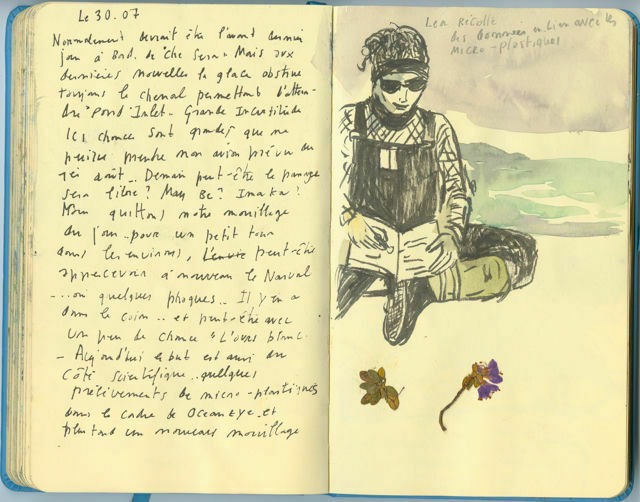 Le 30.07
Normalement devrait être l'avant dernier
jour à Bord de "Che Sera". Mais aux
dernières nouvelles la glace obstrue
toujours le chenal permettant d'attein-
dre "Pond Inlet". Grande Incertitude
Ici chance sont grandes que ne
puisse prendre mon avion prévu du
1er août.. Demain peut-être le passage
sera libre? May Be? Imaka?
Nous quittons notre mouillage
du jour.. pour un petit tour
dans les environs, peut-être
appercevoir à nouveau le Narval
....ou quelques phoques.. Il y en a
dans le coin.. et peut-être avec
un peu de chance "L'ours blanc.
- Aujourd'hui le but est aussi du
côté scientifique.. quelques
prélèvements de micro-plastiques
dans le cadre de OceanEye.. et
plus tard un nouveau mouillage
Lea Récolte
des Données en Lien avec les
MICRO-plastiques